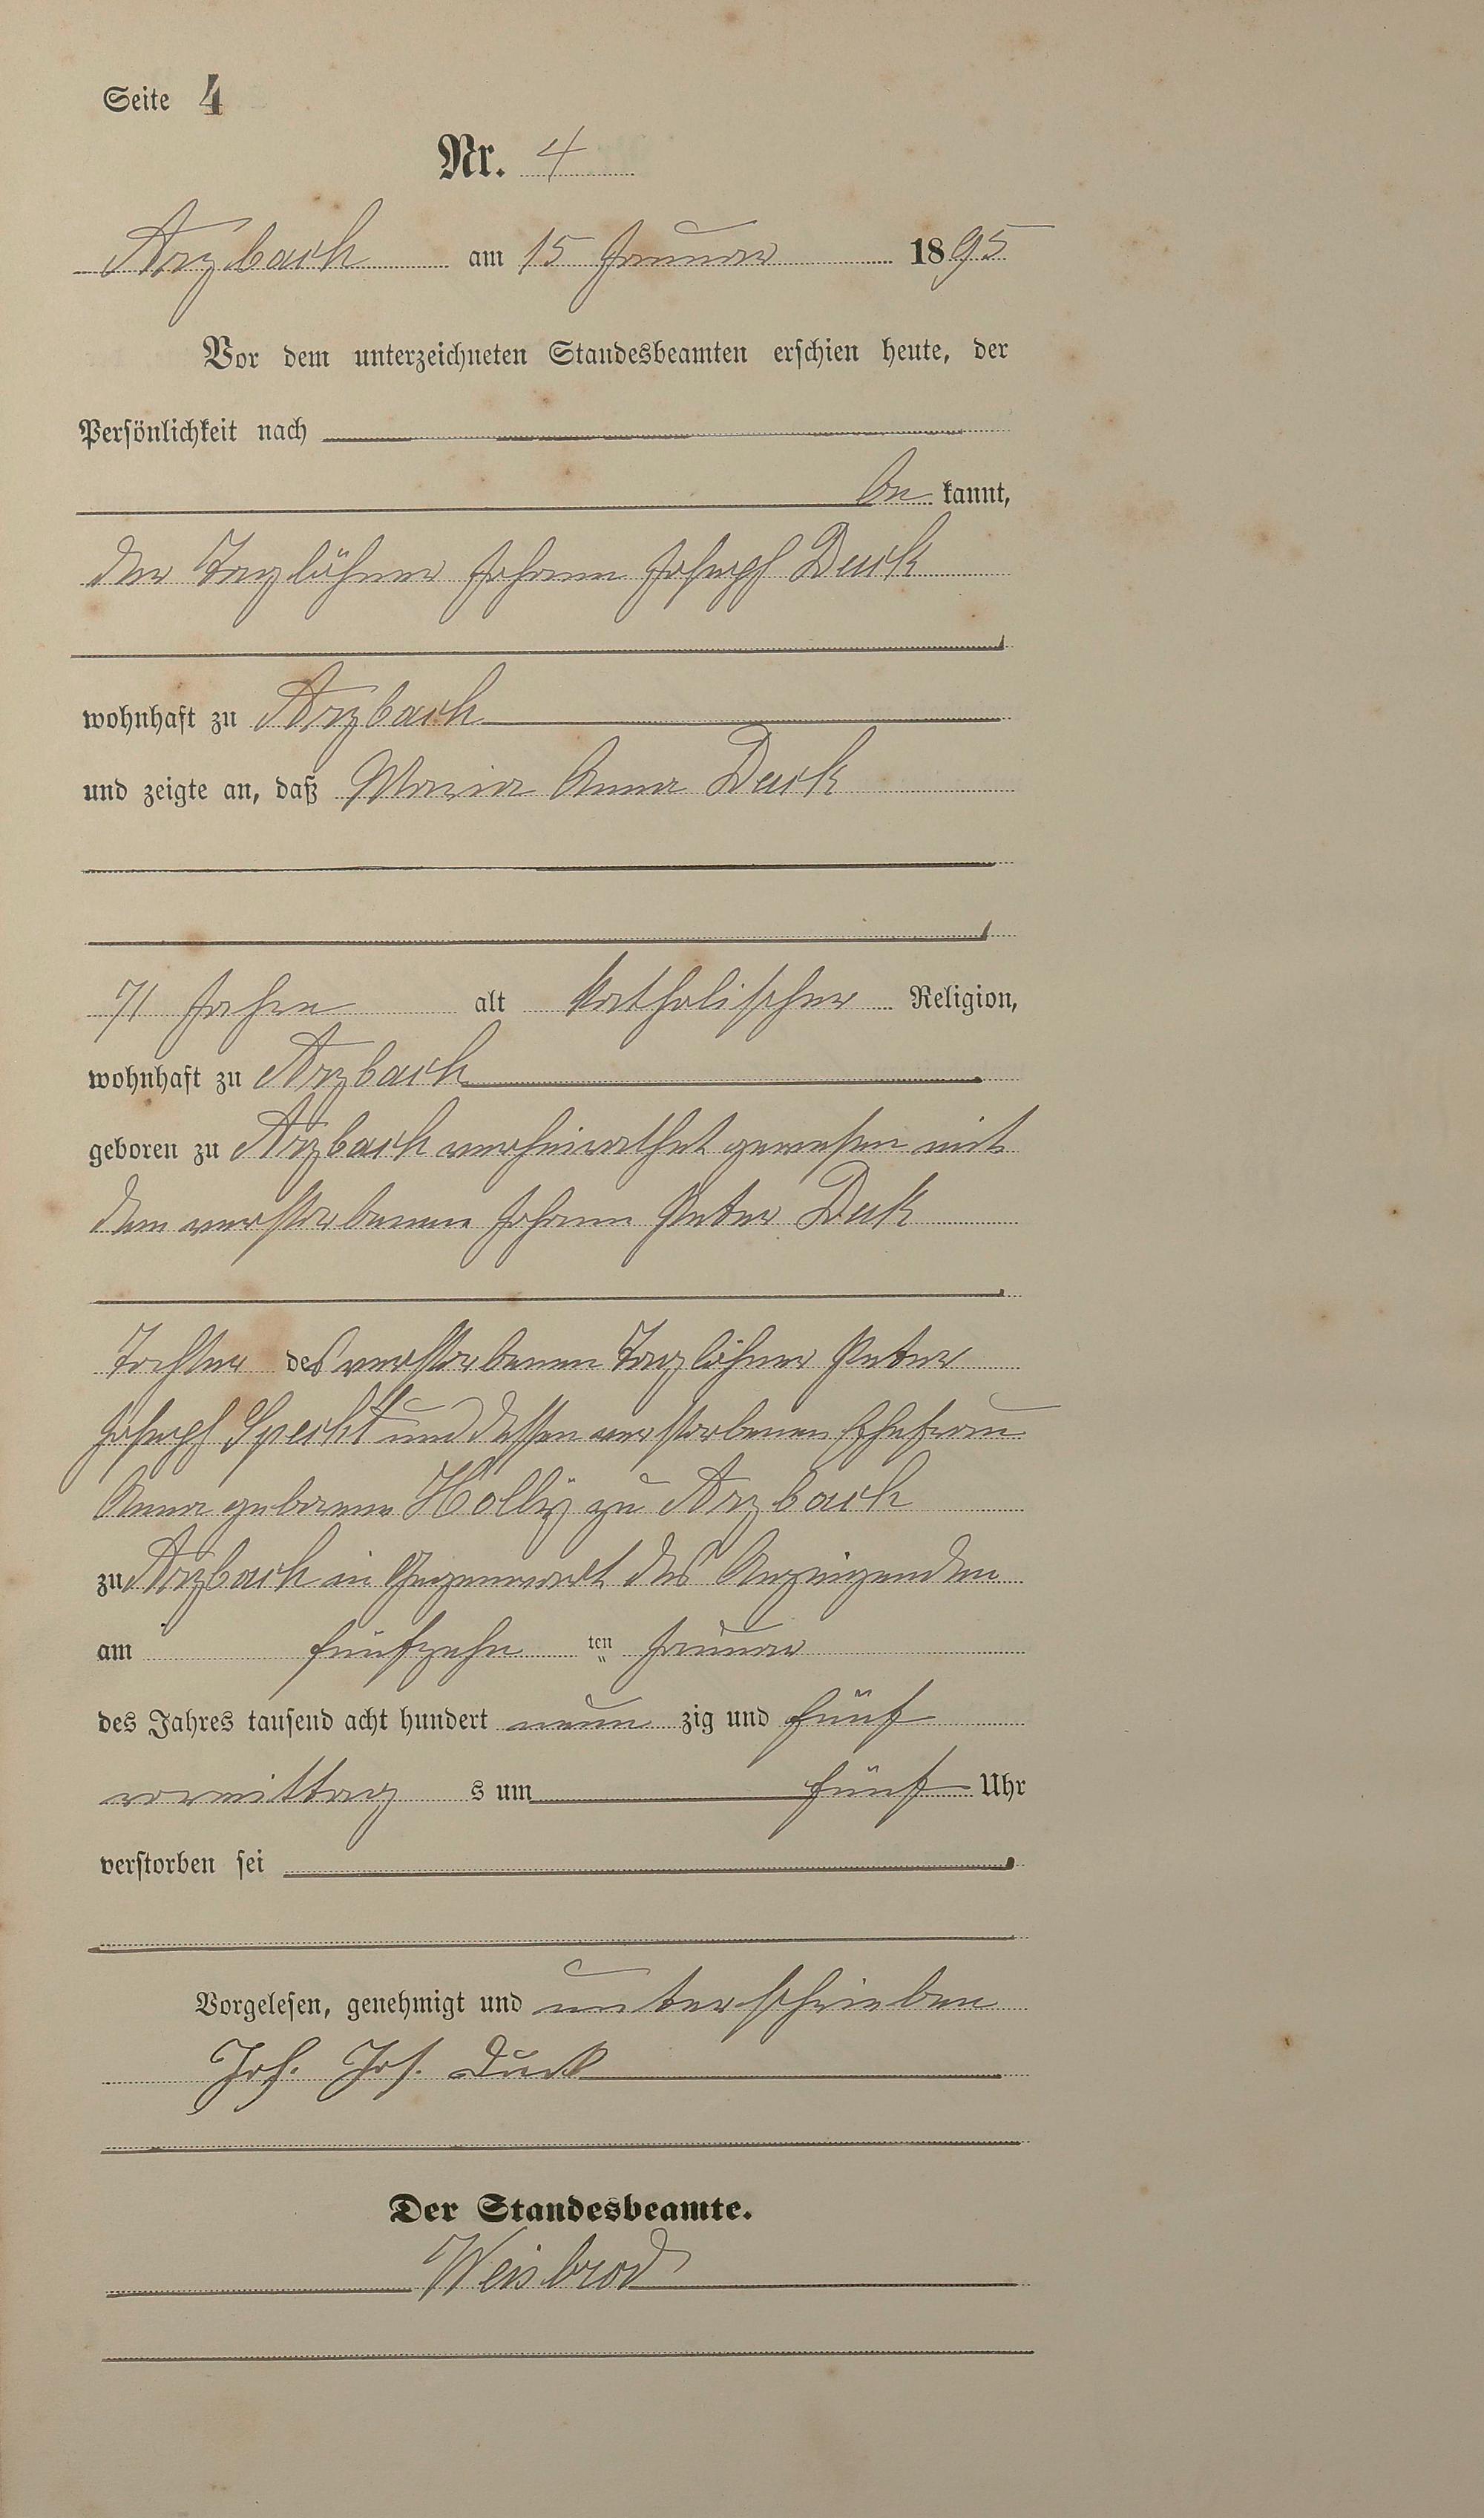 Seite 4
Nr. 4
Arzbach am 15 Januar 1895
Vor dem unterzeichneten Standesbeamten erschien heute, der
Persönlichkeit nach
be kannt,
der Taglöhner Johann Joseph Deusk
wohnhaft zu Arzbach
und zeigte an, daß Maria Anna
71 Jahre alt katholischer Religion,
wohnhaft zu Arzbach
geboren zu Arzbach verheirathet gewesen mit
dem verstorbenen Johann Peter
Tochter des verstorbenen Taglöhner Peter
Joseph Specht und dessen verstorbenen Ehefrau
Anna geborene zu Arzbach
zu Arzbach in Gegenwart des Anzeigenden
am fünfzehn ten Januar
des Jahres tausend acht hundert neun zig und fünf
vormittag s um fünf Uhr
verstorben sei
Vorgelesen, genehmigt und unterschrieben
Joh. Jos.
Der Standesbeamte.
Weisbrod